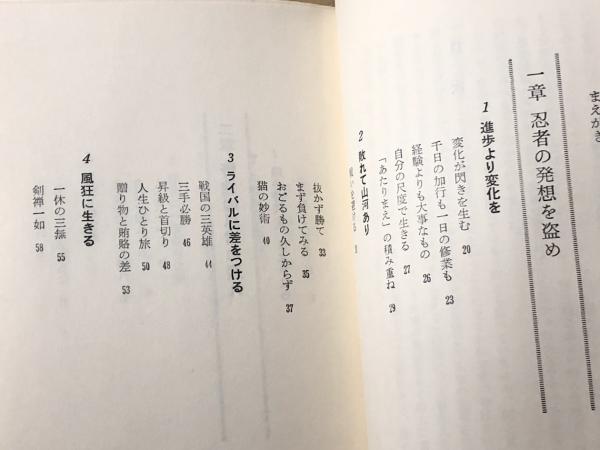 まえがき
一章 忍者の発想を盗め
1 進歩より変化を
変化が閃きを生む 20
千日の加行も一日の修業も 23
経験よりも大事なもの 26
自分の尺度で生きる 27
「あたりまえ」の積み重ね 29
2 敗れて山河あり
抜かず勝て 33
まず負けてみる 35
おごるもの久しからず 37
猫の妙術 40
3 ライバルに差をつける
戦国の三英雄 44
三手必勝 46
昇級と首切り 48
人生ひとり旅 50
贈り物と賄賂の差 53
4 風狂に生きる
一休の三無 55
剣禅一如 58